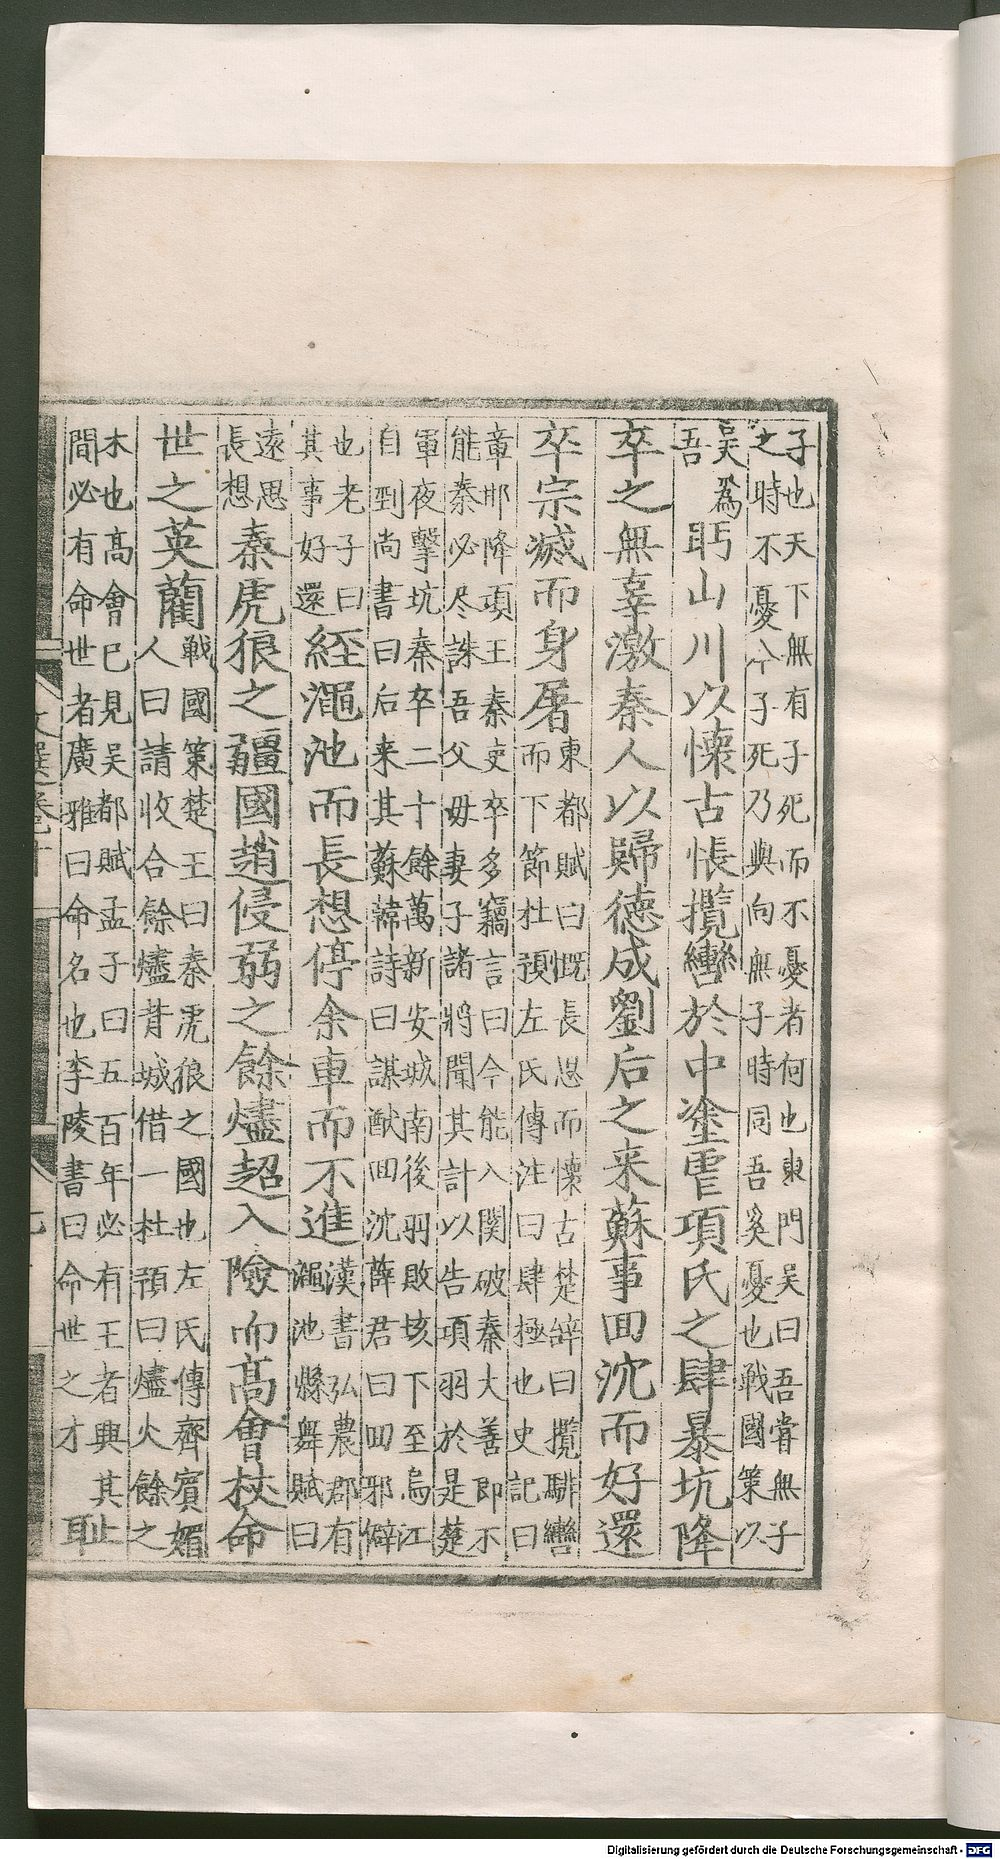 子也天下無有子死而不憂者何也東門吴曰吾嘗無子
之時不憂今子死乃與向無子時同吾奚憂也戰國策以
吴爲
吾
眄山川以懷古悵攬轡於中塗虐項氏之肆暴坑降
卒之無辜激秦人以歸德成劉后之来蘇事囬沈而好還
卒宗滅而身屠
東都賦曰慨長思而懷古楚辭曰攬騑轡
而下節杜預左氏傳注曰肆極也史記曰
章邯降項王秦吏卒多竊言曰今能入関破秦大善即不
能秦必尽誅吾父毋妻子諸將聞其計以告項羽於是楚
軍夜擊坑秦卒二十餘萬新安城南後羽敗垓下至烏江
自剄尚書曰后来其蘇韓詩曰謀猷囬沈薛君曰囬邪僻
也老子曰
其事好還
經澠池而長想停余車而不進
漢書弘農郡有
澠池縣舞賦曰
遠思
長想
秦虎狼之疆國趙侵弱之餘燼超入險而高會杖命
世之英藺
戰國策楚王曰秦虎狼之國也左氏傳齊賓媚
人曰請收合餘燼背城借一杜預曰燼火餘之
木也高會巳見吴都賦孟子曰五百年必有王者興其
間必有命世者廣雅曰命名也李陵書曰命世之才
耻
文選卷十
Digitalisierung gefördert durch die Deutsche Forschungsgemeinschaft - DFG